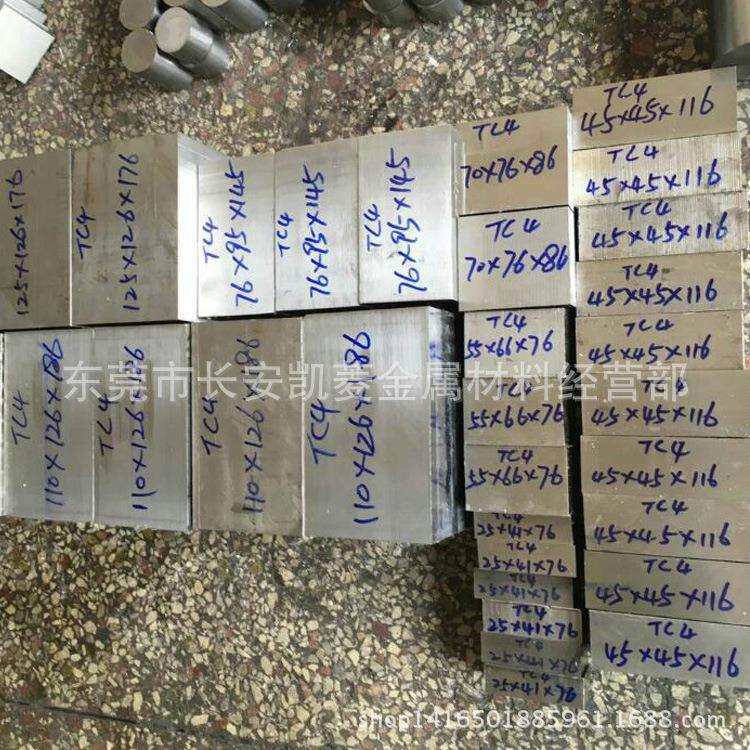 TC4
125×126×176
TC4
125×126×176
TC4
76×95×145
TC4
76×95×145
TC4
76×95×145
TC4
70×76×86
TC4
70×76×86
TC4
45×45×116
TC4
45×45×116
TC4
45×45×116
TC4
45×45×116
TC4
45×45×116
TC4
45×45×116
TC4
45×45×116
TC4
45×45×116
TC4
45×45×116
TC4
45×45×116
TC4
110×126×186
TC4
110×126×186
TC4
110×126×186
TC4
110×126×186
TC4
55×66×76
TC4
55×66×76
TC4
55×66×76
TC4
25×41×76
TC4
25×41×76
TC4
25×41×76
TC4
25×41×76
TC4
25×41×76
TC4
25×41×76
东莞市长安凯菱金属材料经营部
shop1416501885961.1688.com